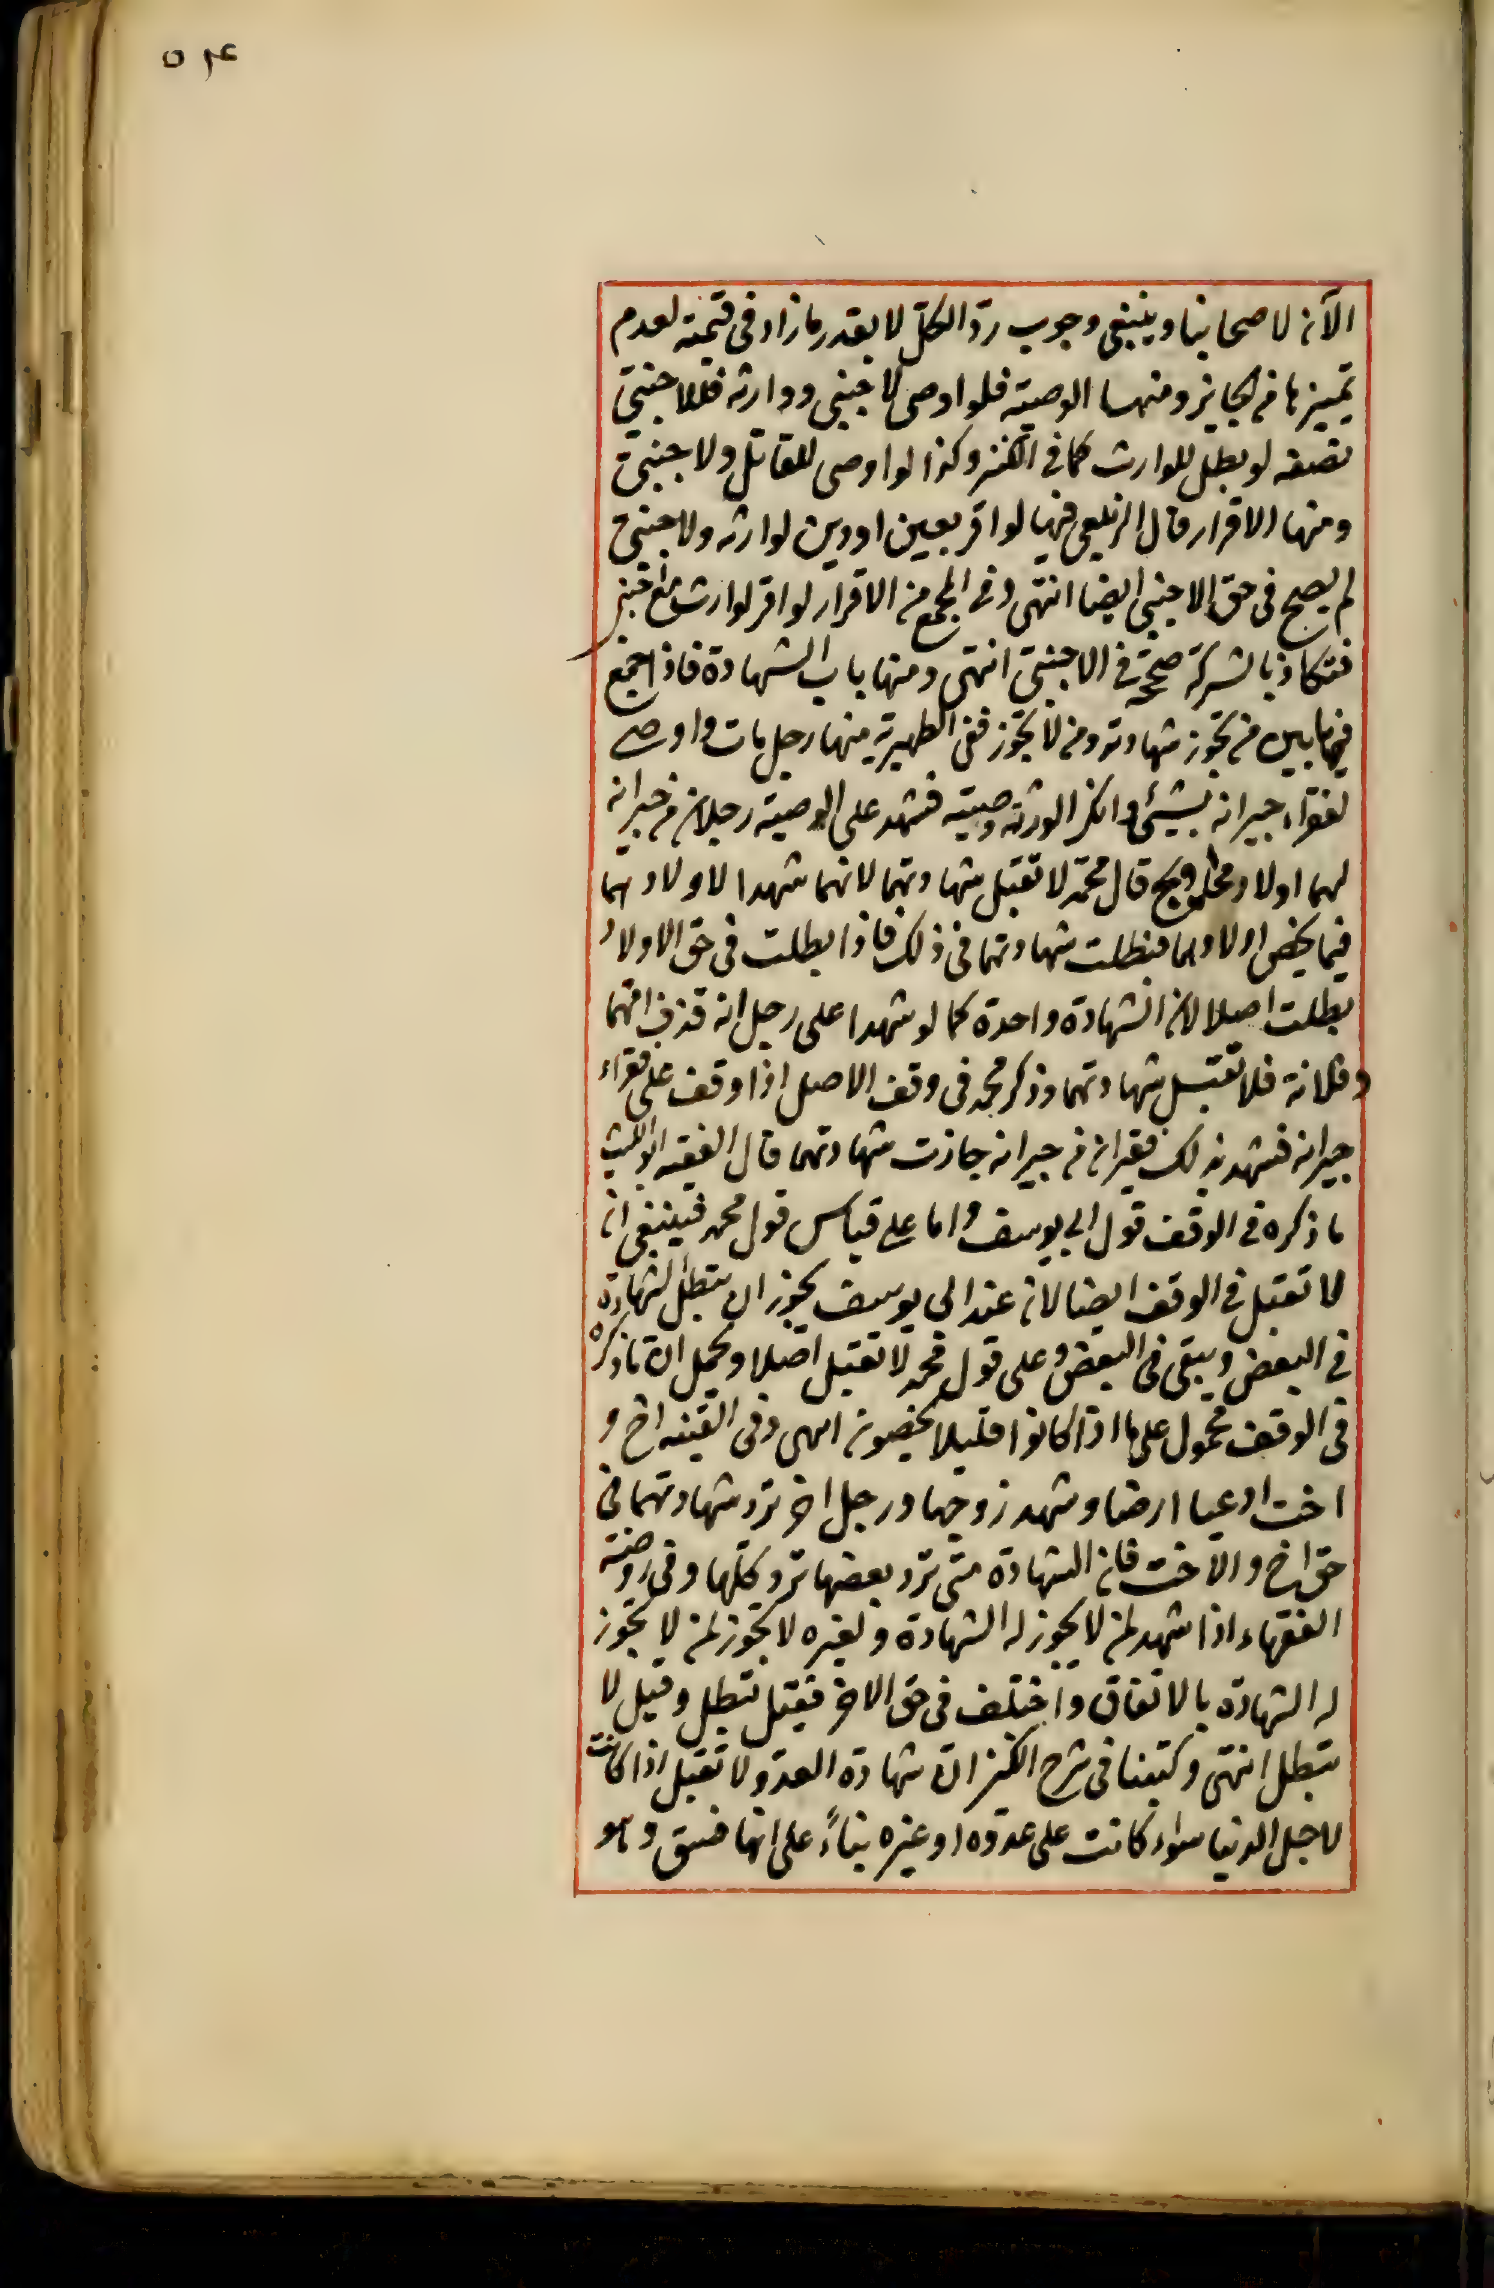 ٥٤
الآن لاصحابنا وينبغي وجوب ردّ الكلّ لا بقدر ما زاد في قيمته لعدم
تميزها من الجايز ومنها الوصية فلو اوصى لاجنبي ووارثه فللاجنبيّ
نصفه وبطل للوارث كما في الكنز وكذا لو اوصى للقاتل ولاجنبيّ
ومنها الاقرار قال الزيلعي فيها لو اقر بعين او دين لوارثه ولاجنبيّ
لم يصح في حق الاجنبي ايضا انتهى وفي المجمع من الاقرار لو اقر لوارث مع اجنبي
فتكاذبا الشركة صححه في الاجنبيّ انتهى ومنها باب الشهادة فاذا جمع
فيها بين من تجوز شهادته ومن لا تجوز ففي الظهيرية منها رجل مات واوصى
لفقراء جيرانه بشيئ وانكر الورثة وصيته فشهد على الوصية رجلان من جيرانه
لهما اولاد محاويج قال محمّد لا تقبل شهادتهما لانهما شهدا لاولادهما
فيما يخص اولادهما فبطلت شهادتهما في ذلك فاذا بطلت في حق الاولاد
بطلت اصلا لان الشهادة واحدة كما لو شهدا على رجل انه قذف امّهما
وفلانة فلا تقبل شهادتهما وذكر محمد في وقف الاصل اذا وقف على فقراء
جيرانه فشهد بذلك فقيران من جيرانه جازت شهادتهما قال الفقيه ابو الليث
ما ذكره في الوقف قول ابي يوسف واما على قياس قول محمد فينبغي ان
لا تقبل في الوقف ايضا لان عند ابي يوسف يجوز ان تبطل الشهادة
في البعض ويبقى في البعض وعلى قول محمد لا تقبل اصلا ويحمل ان ما ذكره
في الوقف محمول على ما اذا كانوا قليلا يحصون انتهى وفي القنية اخ و
اخت ادعيا ارضا وشهد زوجها ورجل اخر تردّ شهادتهما في
حق اخ والاخت فان الشهادة متى تردّ بعضها تردّ كلّها وفي روضة
الفقهاء اذا شهد لمن لا يجوز له الشهادة ولغيره لا تجوز لمن لا يجوز
له الشهادة بالاتفاق واختلف في حق الاخر فقيل تبطل وقيل لا
تبطل انتهى وكتبنا في شرح الكنز ان شهادة العدوّ لا تقبل اذا كانت
لاجل الدنيا سواء كانت على عدوّه او غيره بناءً على انها فسق وهو